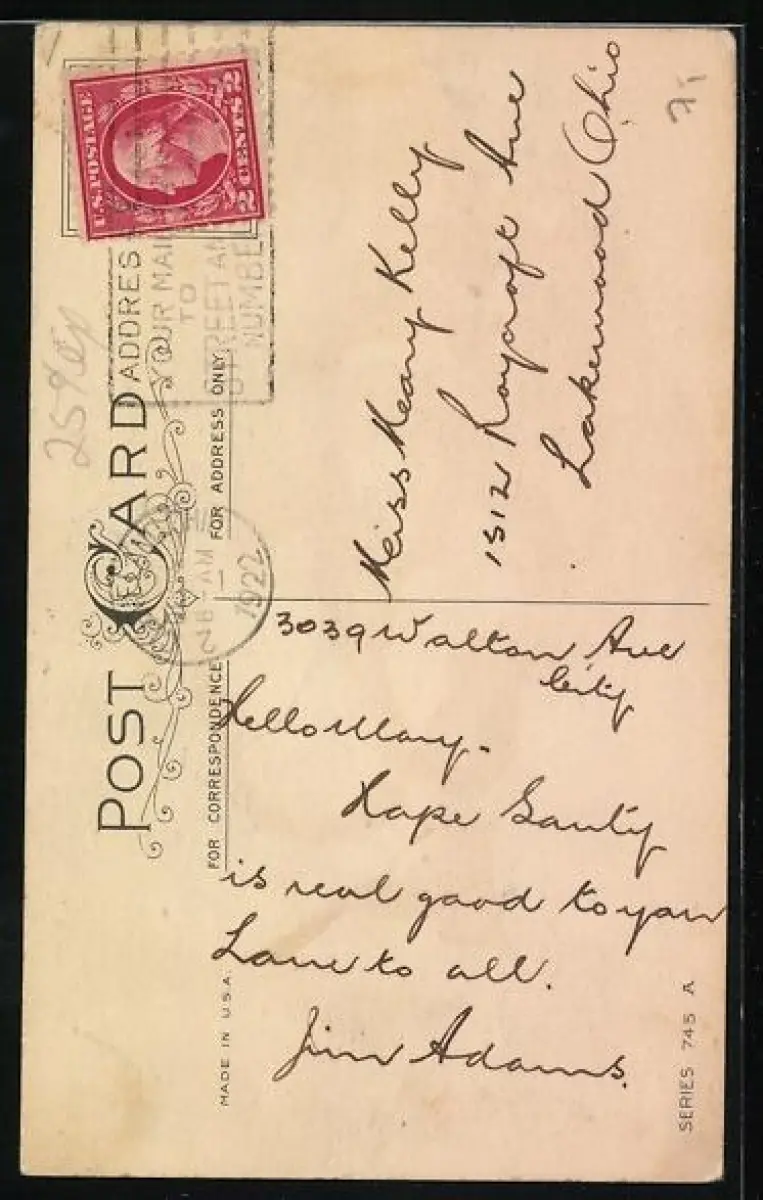 POST CARD
FOR CORRESPONDENCE
FOR ADDRESS ONLY
U.S.POSTAGE
2 CENTS 2
ADDRESS
YOUR MAIL
TO
STREET AND
NUMBER
8-AM
1922
3039 Walton Ave
City
Hello Mary.
Hope Santy
is real good to you
Love to all.
Jim Adams.
Miss Mary Kelly
1512 Roycroft Ave
Lakewood Ohio
MADE IN U.S.A.
SERIES 745 A